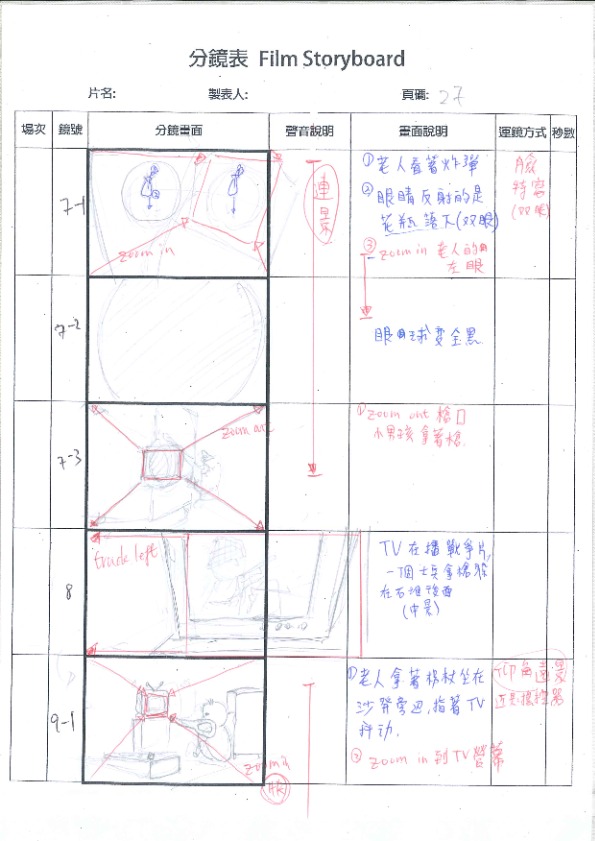 分鏡表 Film Storyboard
片名:
製表人:
頁碼: 27
場次 鏡號 分鏡畫面 聲音說明 畫面說明 運鏡方式 秒數
7-1
zoom in
連景
①老人看著炸彈
②眼睛反射的是
花瓶落下(双眼)
③zoom in 老人的
左眼
臉
特寫
(双眼)
7-2
眼球變全黑
7-3
zoom out
①zoom out 槍口
小男孩拿著槍
8
track left
TV在播戰爭片,
一個士兵拿槍躲
在石堆後面
(中景)
9-1
zoom in
①老人拿著拐杖坐在
沙發旁邊,指著TV
抖动.
②zoom in 到TV螢幕
仰角遠景
近景搖控器